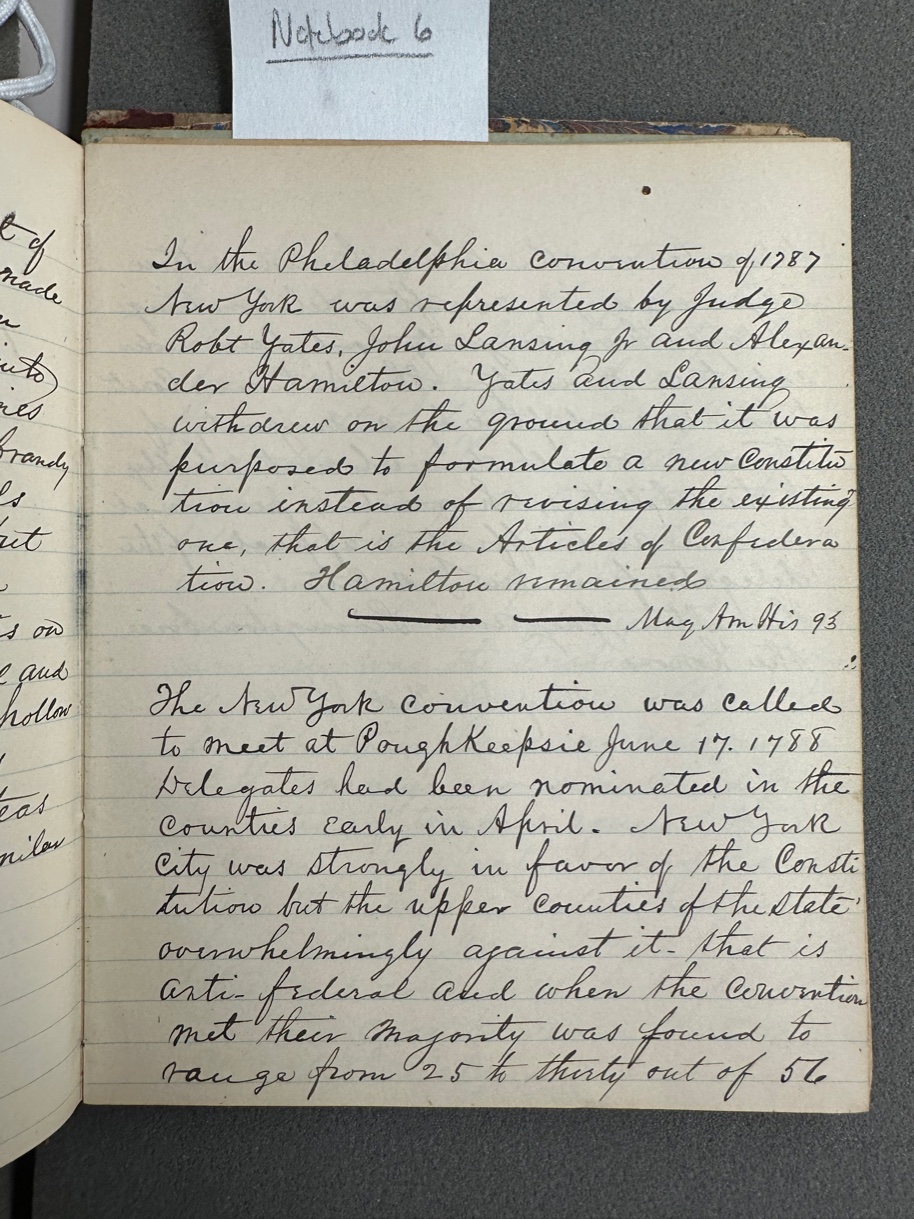 Notebook 6
t of
made
into
nes
brandy
ls
s on
e and
hollow
eas
milar
In the Pheladelphia convention of 1787
New York was represented by Judge
Robt Yates, John Lansing Jr and Alexan-
der Hamilton. Yates and Lansing
withdrew on the ground that it was
purposed to formulate a new Constitu
tion instead of revising the existing
one, that is the Articles of Confedera
tion. Hamilton remained
Mag Am His 93
The New York convention was called
to meet at PoughKeepsie June 17. 1788
Delegates had been nominated in the
counties early in April. New York
City was strongly in favor of the Consti
tution but the upper counties of the state
overwhelmingly against it - that is
anti-federal and when the convention
met their majority was found to
range from 25 to thirty out of 56